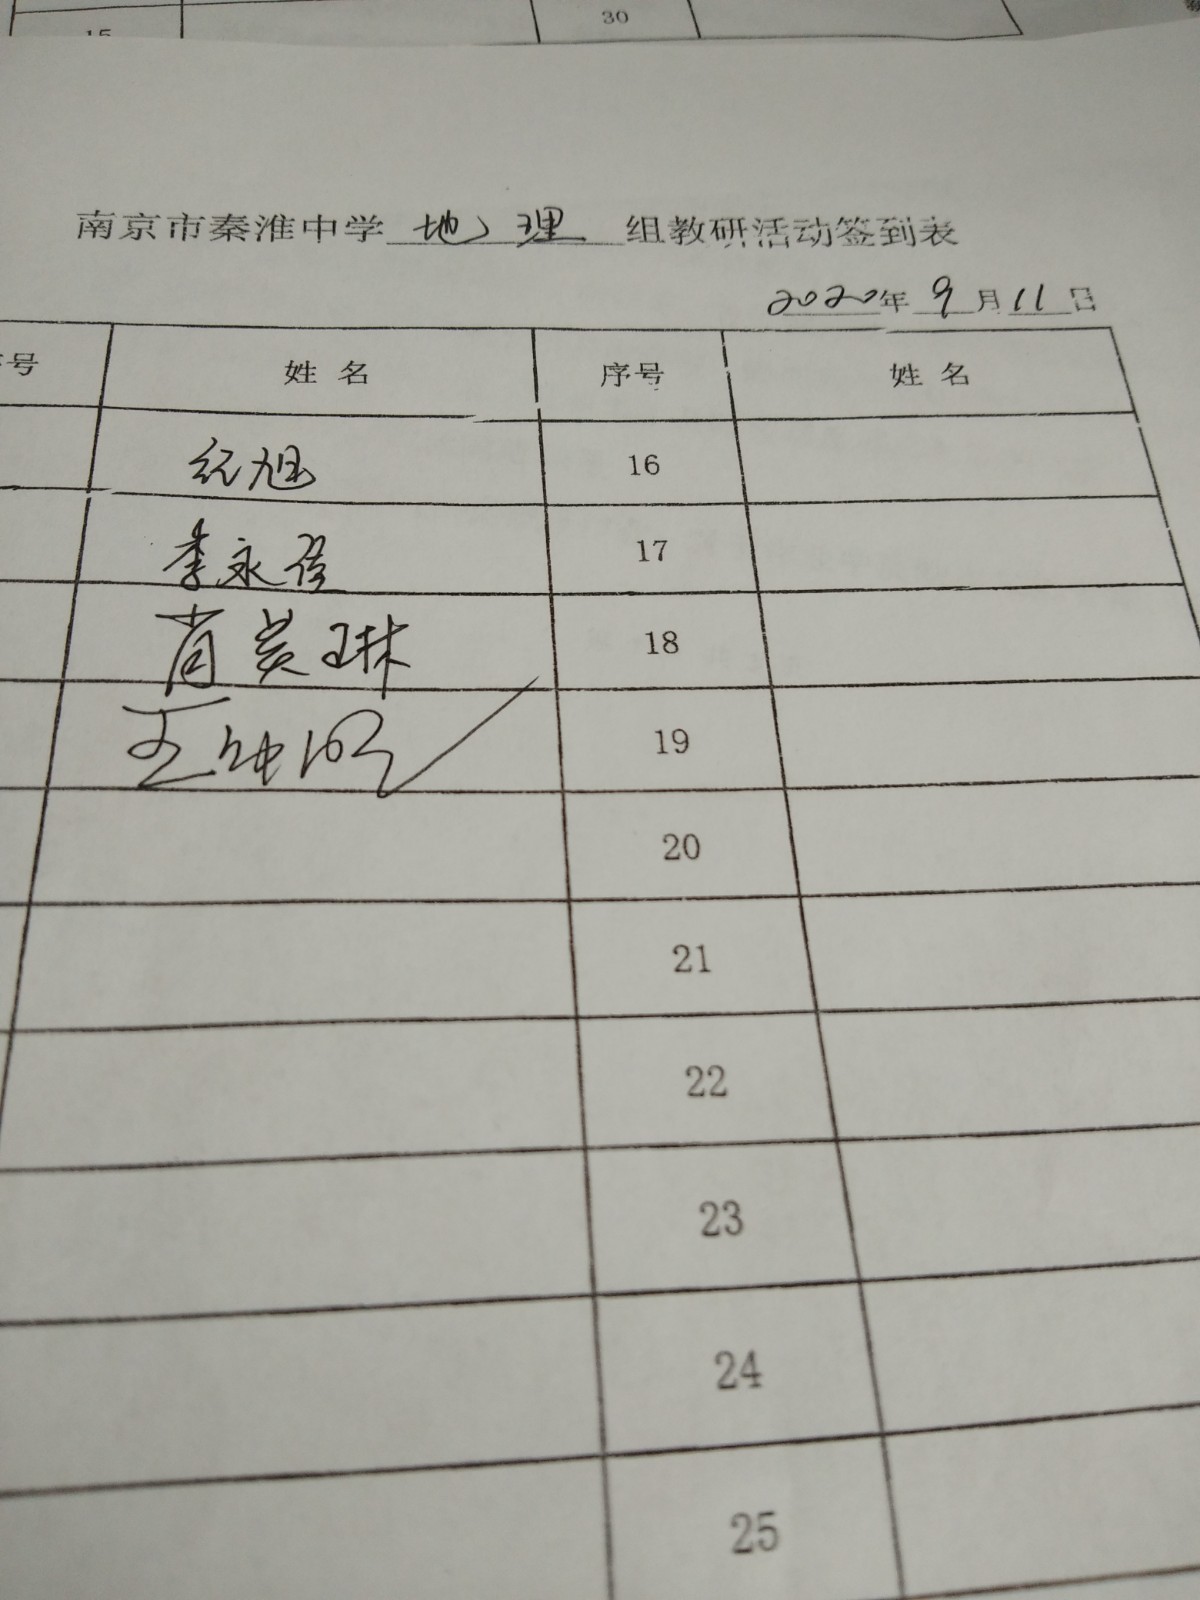 30
15
南京市秦淮中学 地理 组教研活动签到表
2020年 9月11日
序号 姓名 序号 姓名
纪旭 16
李永 17
肖美琳 18
王 19
20
21
22
23
24
25